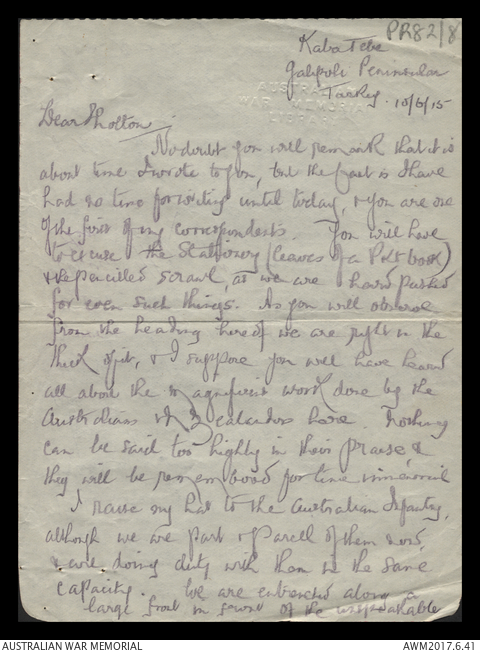 PR82/8
Kaba Tebe
Galipoli Peninsular
Turkey. 10/6/15
AUSTRALIAN
WAR MEMORIAL
LIBRARY
Dear
No doubt you will remark that it is
about time I wrote to you, but the fact is I have
had no time for writing until today, & you are one
of the first of my correspondents. You will have
to excuse the Stationery (leaves of a Pkt book)
& the pencilled scrawl, as we are hard pushed
for even such things. As you will observe
from the heading hereof we are right in the
thick of it, & I suppose you will have heard
all about the magnificent work done by the
Australians & N Zealanders here. Nothing
can be said too highly in their praise &
they will be remembered for time immemorial
I raise my hat to the Australian Infantry,
although we are part & parcell of them now,
& are doing duty with them in the same
capacity. We are entrenched along a
large front in front of the unspeakable
AUSTRALIAN WAR MEMORIAL
AWM2017.6.41